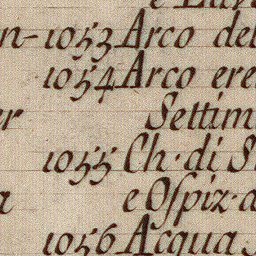 n- 1053 Arco del
1054 Arco ere
er Settim
1055 Ch. di S
a e Ospiz. d
1056 Acqua